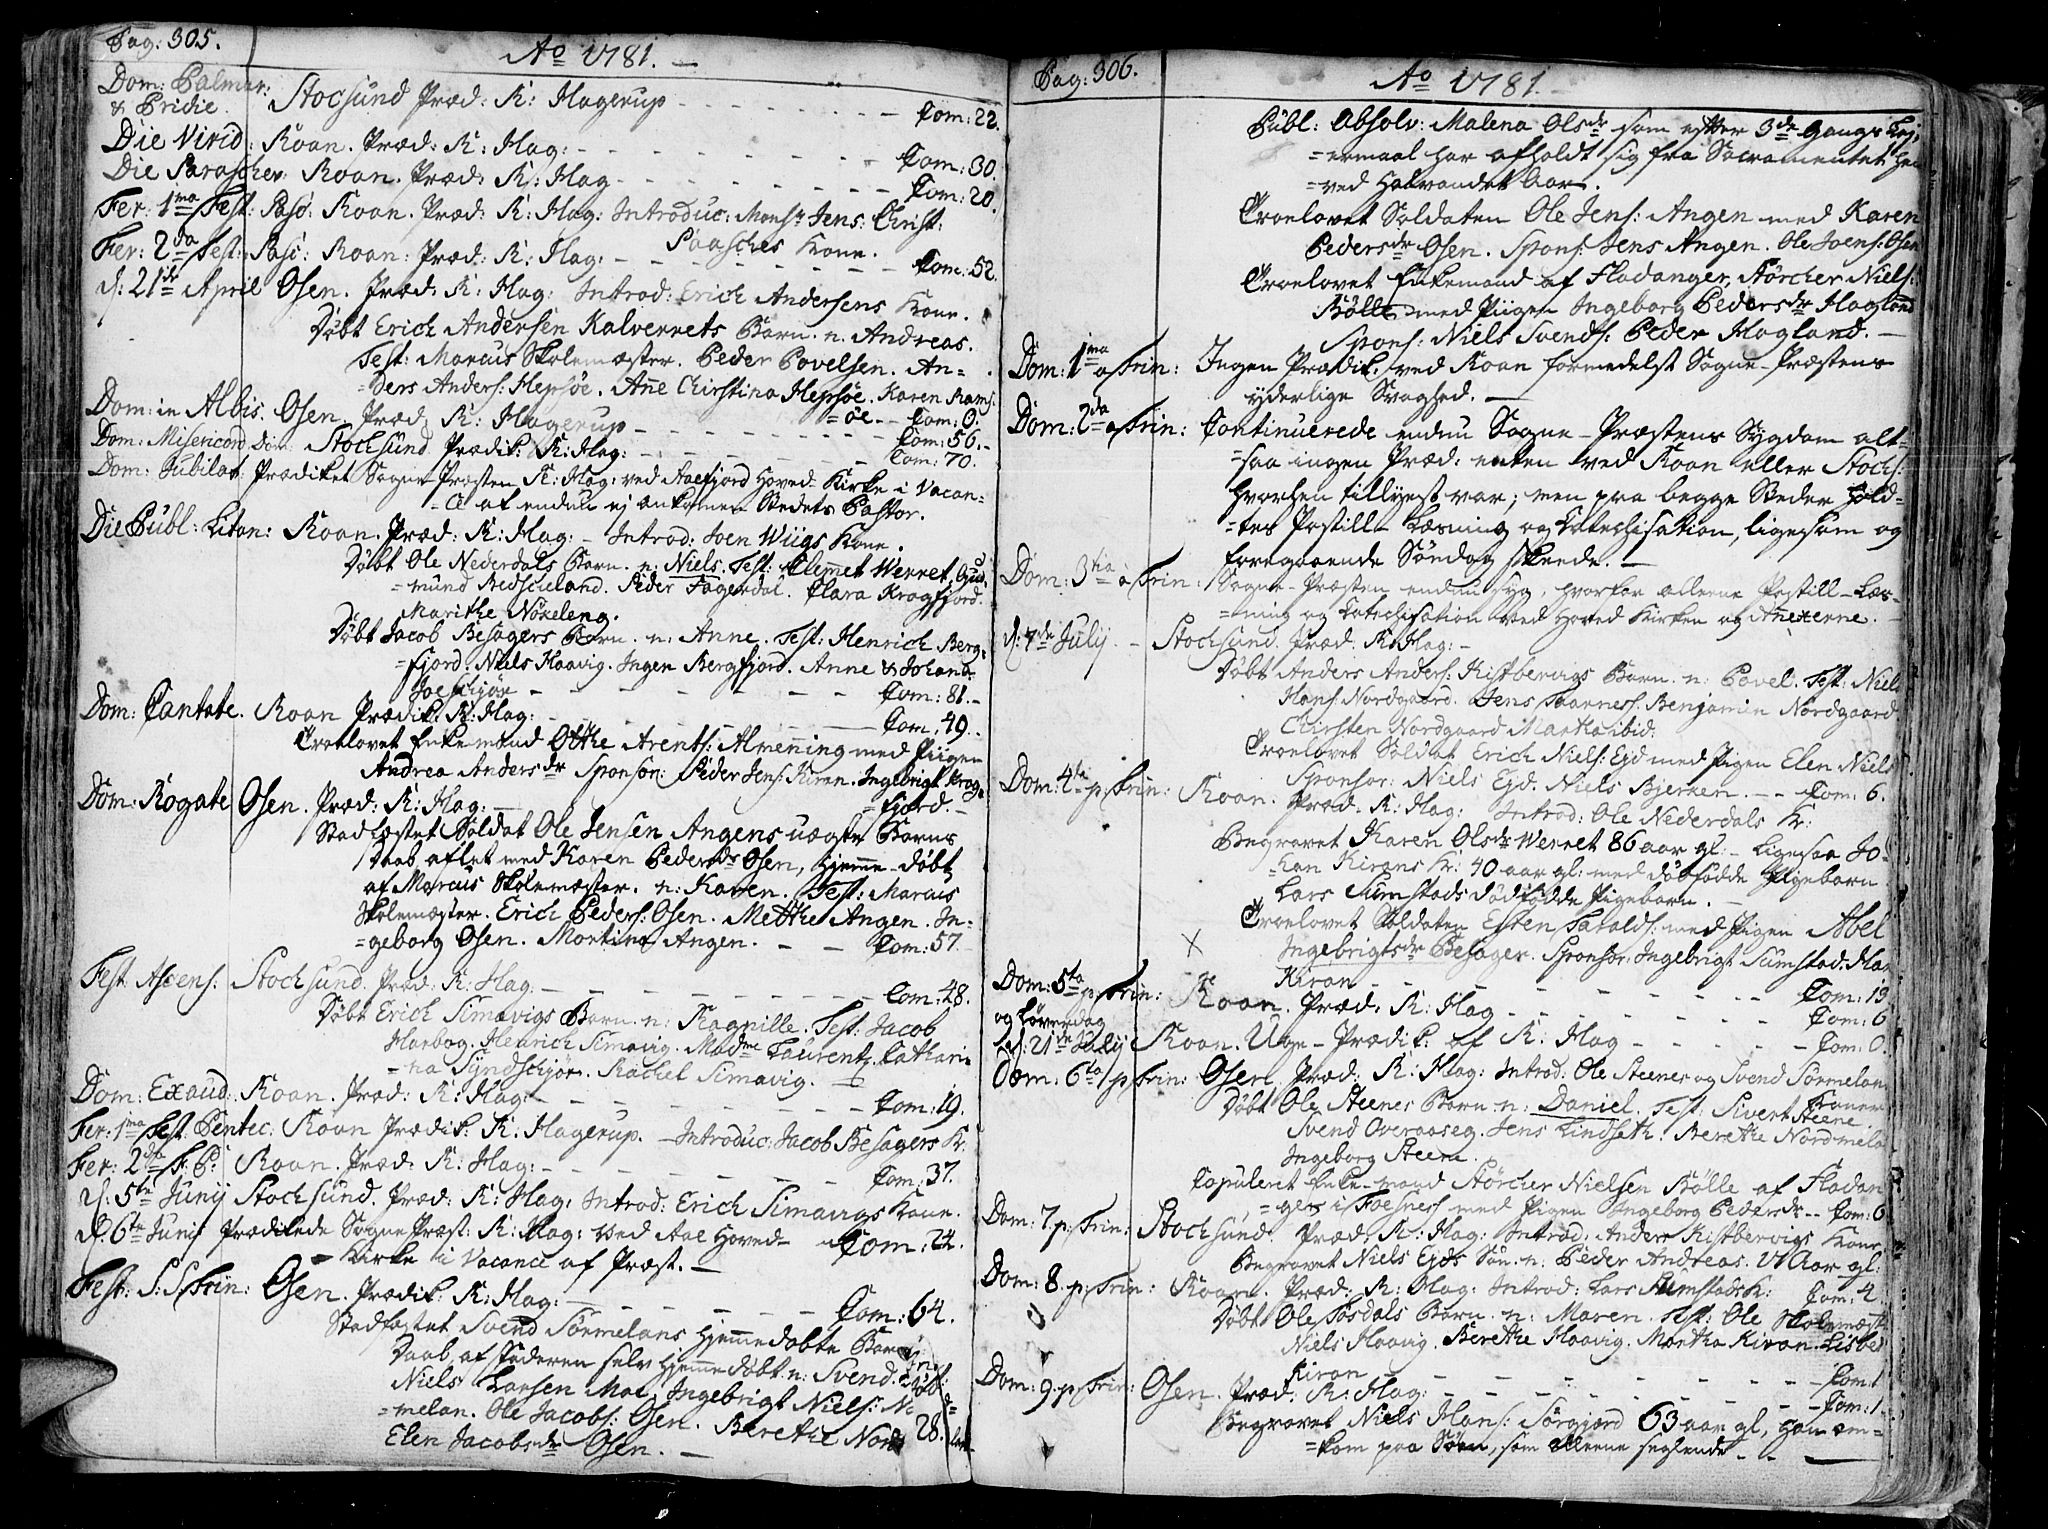 Pag: 305.
Ao 1781. —
Dom: Palmar:
& Pridie. Stocsund Præd: K: Hagerup - - - - - - Com: 22.
Die Virid: Roan. Præd: K: Hag: - - - - - - - - Com: 30.
Die Paraschev: Roan. Præd: K: Hag - - - - - - - Com: 20.
Fer: 1ma Fest: Pasc: Roan. Præd: K: Hag: Introduc: Monsr Jens: Christ:
Paasches Kone.
Fer: 2da Fest: Pasc: Roan: Præd: K: Hag: - - - - - - - Com: 52.
d: 21de April Osen. Præd: K: Hag: Introd: Erich Andersens Kone.
Døbt Erich Andersen Kalvernets Barn. n: Andreas.
Test: Marcus Skolemæster. Peder Povelsen. An-
=ders Anders: Hepsøe. Anne Chirstina Hepsøe. Karen Rams:
=øe. - Com: 0.
Dom: in Albis. Osen. Præd: K: Hagerup - - - - - Com: 56. -
Dom: Misericord Dom: Stocksund Prædik: K: Hag: - - - - Com: 70.
Dom: Jubilat: Prædiket Sogne-Præsten K: Hag: ved Aaefjord Hoved-Kirke i Vacan-
=ce af endnu ej ankomen Stedets Pastor.
Die Publ: Litan: Roan. Præd: K: Hag: - Introd: Joen Wiigs Kone.
Døbt Ole Nederdals Barn. n: Niels. Test: Clemet Werret, Gud
=mund Bredsceland. Peder Fagerdal. Clara Kragfjord.
Marithe Nøxeleng.
Døbt Jacob Besagers Barn. n: Anne. Test: Henrich Berg=
=fjord. Niels Haavig. Inger Bergfjord. Anne & Johana
Joeschjør - - - - - - - Com: 81. -
Dom: Cantate. Roan Prædik: K: Hag: - - - - - - Com: 49. -
Troelovet Enkemand Otthe Arents: Almenning med Piigen
Andrea Andersdr Sponsor: Peder Jens: Kiran. Ingebrigt Krag=
=fjord. -
Dom: Rogate Osen. Præd: K: Hag: -
Stadfæstet Soldat Ole Jensen Angens uægte Barns
Daab aflet med Karen Pedersdr Osen, hjemme-døbt
af Marcus Skolemæster. n: Karen. Test: Marcus
Skolemæster. Erich Peders: Osen. Metthe Angen. In-
=geborg Osen. Martina Angen. - - Com: 57.
Fest: Ascens: Stocsund. Præd: K: Hag: - - - - - - - - Com: 48.
Døbt Erich Simavigs Barn. n: Ragnille. Test: Jacob
Harbog. Henrich Simavig. Madme Laurentz. Cathari-
=na Syndschjør. Rachel Simavig. -
Dom: Exaud: Roan. Præd: K: Hag: - - - - - - - - Com: 19.
Fer: 1ma Fest: Pentec: Roan Prædik: K: Hagerup. - Introduc: Jacob Besagers Kr:
Fer: 2da F: P: Roan. Præd: K: Hag: - - - - - - - Com: 37.
d: 5te Junij Stocksund. Præd: K: Hag: Introd: Erich Simavigs Kone.
d: 6te Junij Prædikede Sogne-Præst: K: Hag: ved Aae Hoved- Com: 24.
Kirke i Vacance af Præst. -
Fest: S: S: Trin: Osen. Prædik: K: Hag: - - - - - - Com: 64.
Stadfæstet Svend Sørmelans hjemmedøbte Barns
Daab, af Faderen selv hjemmedøbt n: Svend.
Niels Larsen Mae, Ingebrigt Niels: No
=melan. Ole Jacobs: Osen. Berethe Nord 28.
Elen Jacobsdr Osen. -
Pag: 306.
Ao 1781. -
Publ: Absolv: Malena Olsdr som efter 3de Gangs Lej;
=ermaal har afholdt sig fra Sacramentet hen
=ved Halvandet Aar.
Troelovet Soldaten Ole Jens: Angen med Karen
Pedersdr Osen. Spons: Jens Angen. Ole Joens: Osen
Troelovet Enkemand af Fladanger, Størcher Niels:
Bølle med Piigen Ingeborg Pedersdr Hagland
Spons: Niels Svends: Peder Hagland. -
Dom: 1ma a Trin: Ingen Prædik: ved Roan formedelst Sogne-Præstens
yderlige Svaghed. -
Dom: 2da a Trin: Continuerede endnu Sogne-Præstens Sygdom alt-
=saa ingen Præd: enten ved Roan eller Stocs:
hvorhen tillyest var; men paa begge Steder hold-
=tes Postill-Læsning og Catechisation, ligesom og
foregaaende Søndag skeede. -
Dom: 3tia a Trin: Sogne-Præsten endnu syg, hvorfor allene Postill-Læs-
=ning og Catechisation ved Hoved Kirken og Anexerne. -
d: 7de July - Stocksund. Præd: K: Hag: -
Døbt Anders Anders: Kistbervigs Barn. n: Povel. Test: Niels
Hans: Nordgaard. Jens Hannes: Benjamin Nordgaard
Chirsten Nordgaard Martha ibid:
Troelovet Soldat Erich Niels: Ejd med Pigen Elen Niels
Sponsor: Niels Ejd. Niels Bjerken. - - Com: 6.
Dom: 4ta p: Trin: Roan. Præd: K: Hag: Introd: Ole Nederdals Kr:
Begravet Karen Olsdr Werret 86 aar gl: - Ligesaa Jo-
=han Kirans Kr: 40 aar gl: med dødfødde Pigebarn
Lars Sumstads dødfødde Pigebarn. -
Troelovet Soldaten Esten Haralds: med Pigen Abel
X Ingebrigtsdr Besager. Sponsor: Ingebrigt Sumstad. Han
Kiran - - - - - - - - - - Com: 19
Dom: 5ta p: Trin: Roan. Præd: K: Hag - - - - - - - Com: 6
og Løverdag
d: 21de July Roan. Uge-Prædik: af K: Hag - - - - - - Com: 0.
Dom: 6ta p: Trin: Osen. Præd: K: Hag: Introd: Ole Steenes og Svend Sørmelan
Koner
Døbt Ole Steenes Barn n: Daniel. Test: Sivert Steene.
Svend Overaaseg. Jens Lindseth. Berethe Nordmela
Ingeborg Steene.
Copuleret Enke-mand Størcher Nielsen Bølle af Fladan
=ger i Foesnes med Pigen Ingeborg Pedersdr - - Com: 6
Dom: 7. p: Trin: Stocksund. Præd: K: Hag: Introd: Anders Kistbervigs Kone
Begravet Niels Ejds Søn n: Peder Andreas. VI Aar gl:
Dom: 8. p: Trin: Roan. Præd: K: Hag: Introd: Lars Sumstads K: Com: 4
Døbt Ole Tøsdals Barn. n: Maren. Test: Ole Skolemæst
Niels Haavig. Berethe Haavig. Martha Kiran. Lisbe
Kiran - - - - - - - - - Com: 1
Dom: 9. p: Trin: Osen. Præd: K: Hag: - - - - - - - Com: 1.
Begravet Niels Hans: Sørgjord 63 aar gl, han om-
=kom paa Søen, som allene seglende - - -